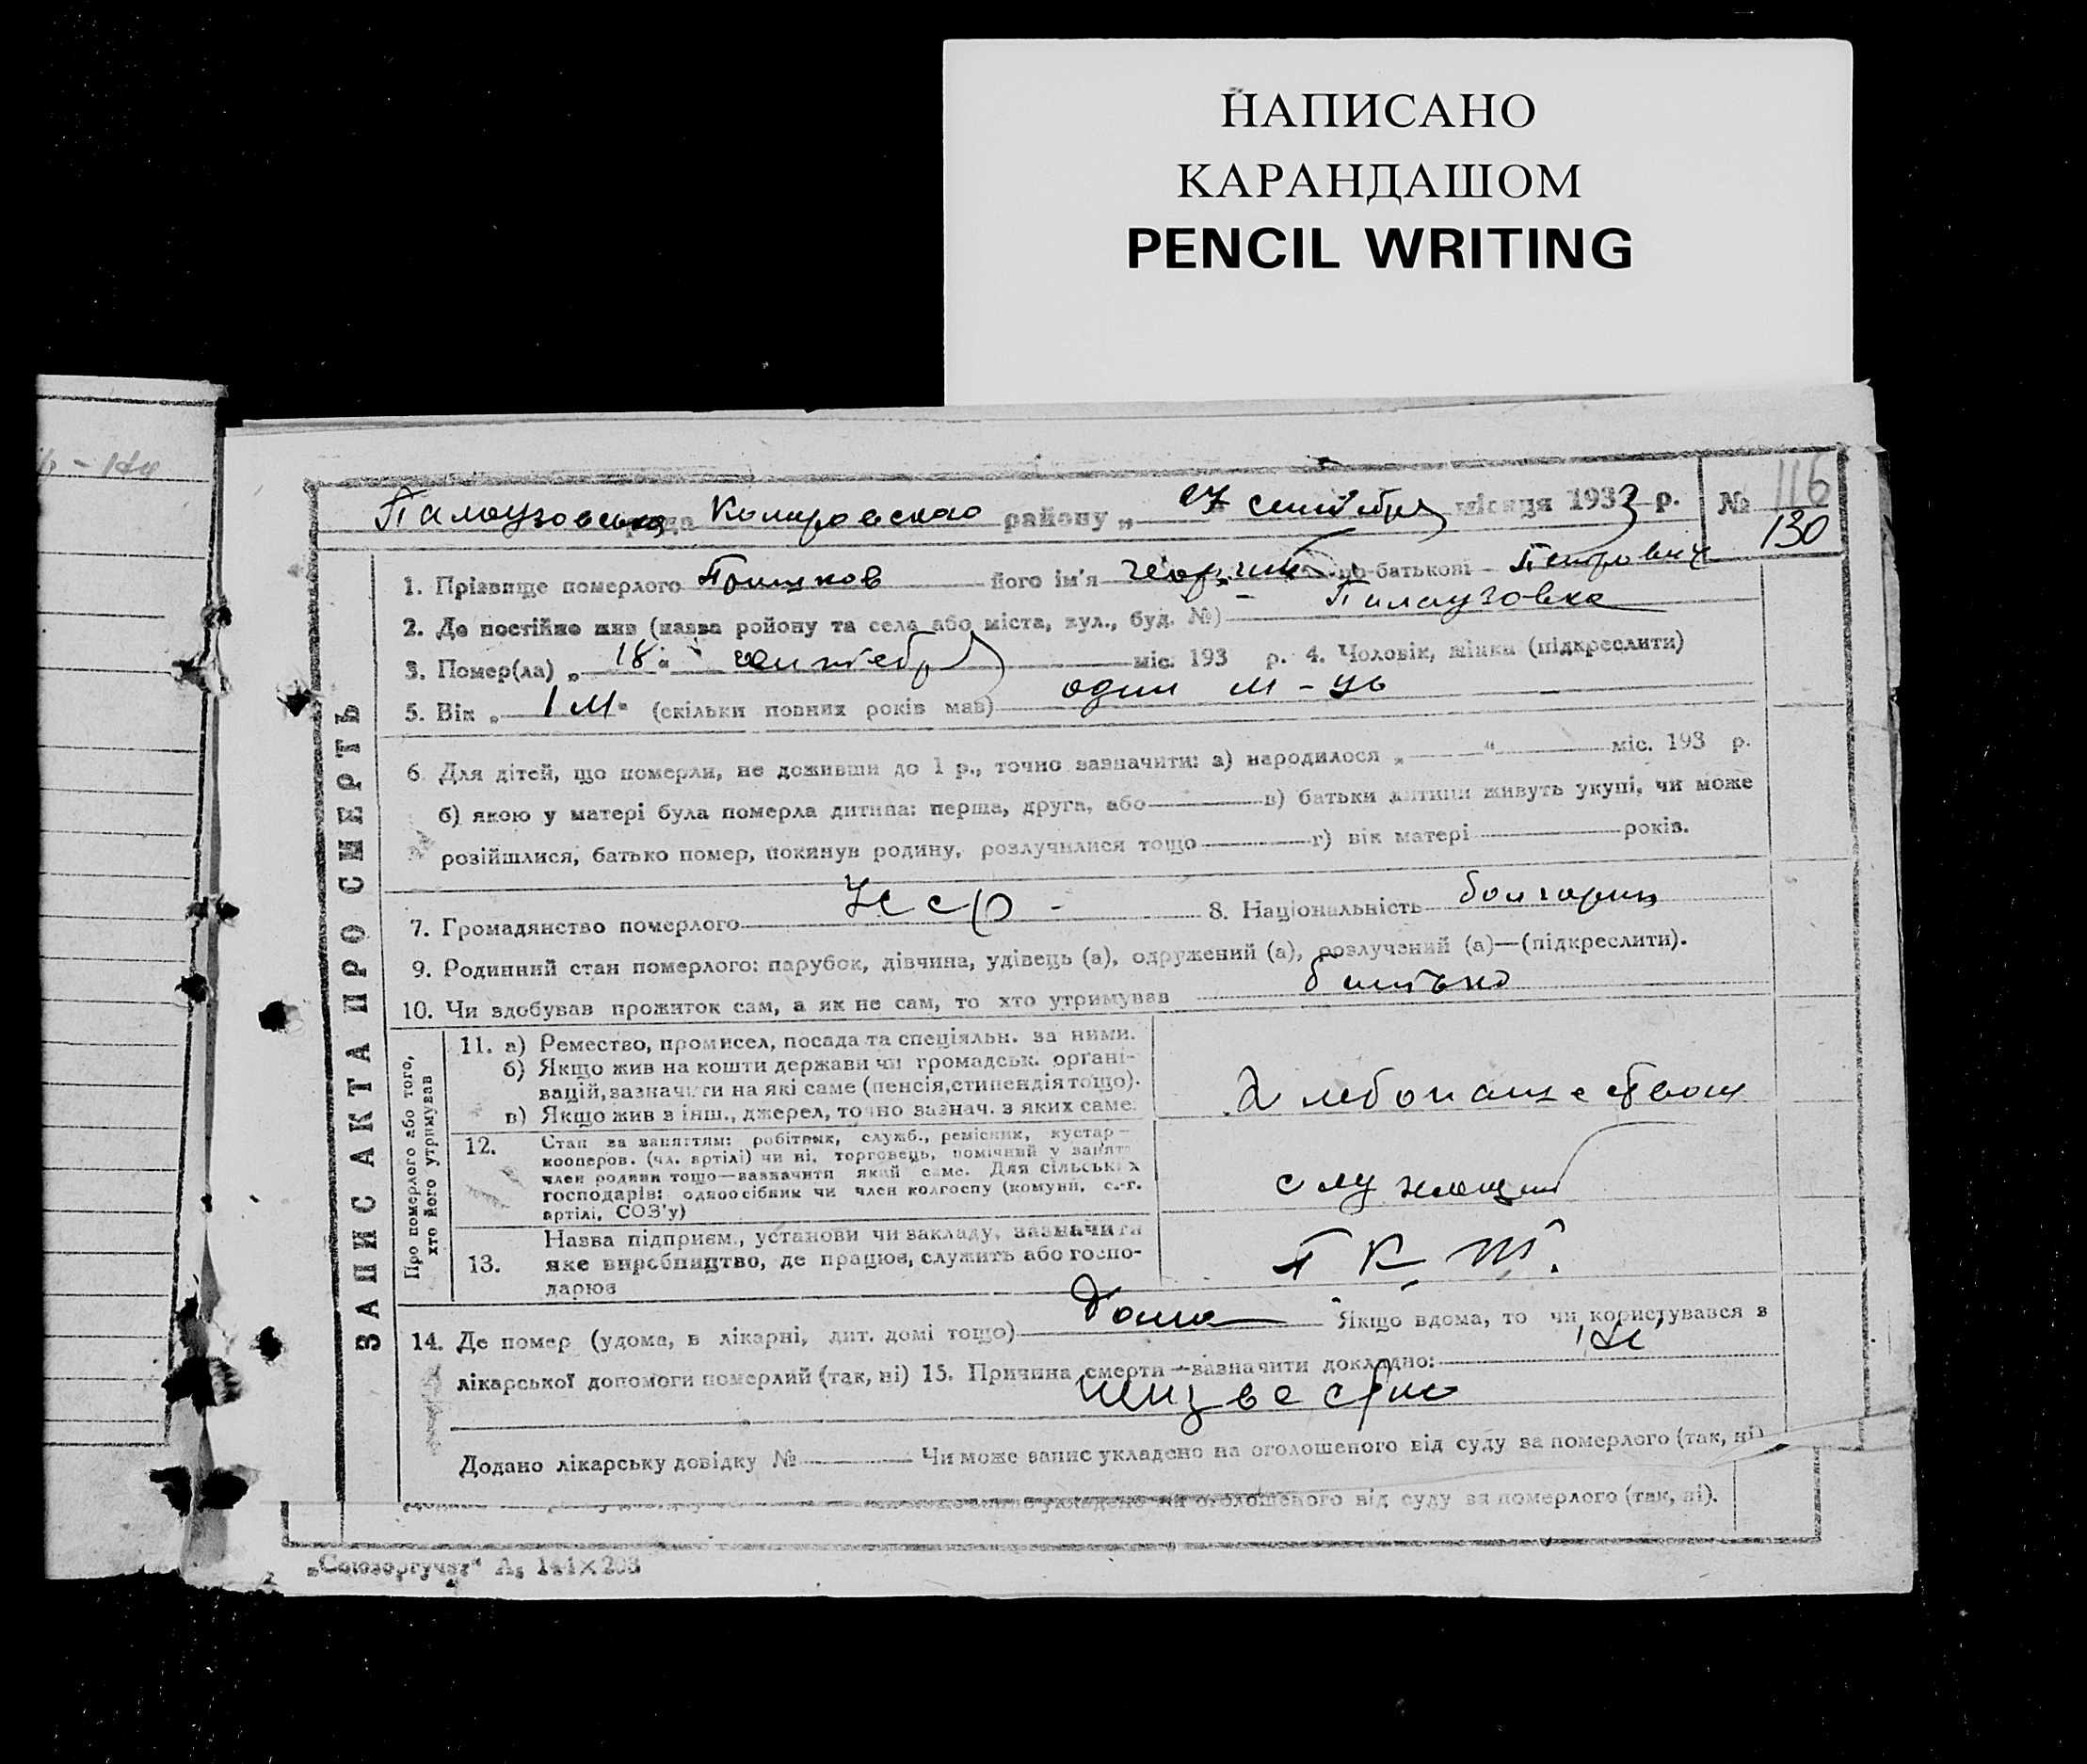 НАПИСАНО
КАРАНДАШОМ
PENCIL WRITING
116
Палаузовська рада Комаровского району „ 27 " сентября місяця 1933 р. № 130
ЗАПИС АКТА ПРО СМЕРТЬ
1. Прізвище померлого його ім'я Георгий по-батькові Петрович
2. Де постійно жив (назва ройону та села або міста, вул., буд. №) Палаузовка
3. Помер(ла) „ 18 " сентебря міс. 193 р. 4. Чоловік, жінка (підкреслити)
5. Вік „ 1 м " (скільки повних років мав) один м-ць
6. Для дітей, що померли, не доживши до 1 р., точно зазначити: а) народилося „ " міс. 193 р.
б) якою у матері була померла дитина: перша, друга, або в) батьки дитини живуть укупі, чи може
розійшлися, батько помер, покинув родину, розлучилися тощо г) вік матері років.
7. Громадянство померлого 8. Національність болгарин
9. Родинний стан померлого: парубок, дівчина, удівець (а), одружений (а), розлучений (а)—(підкреслити).
10. Чи здобував прожиток сам, а як не сам, то хто утримував батько
Про померлого або того,
хто його утримував
11. а) Ремество, промисел, посада та спеціяльн. за ними.
б) Якщо жив на кошти держави чи громадськ. органі-
зацій, зазначити на які саме (пенсія, стипендія тощо).
в) Якщо жив з інш., джерел, точно зазнач. з яких саме.
12. Стан за заняттям: робітник, служб., ремісник, кустар—
кооперов. (чл. артілі) чи ні, торговець, помічний у занят.
член родини тощо—зазначити який саме. Для сільських
господарів: одноосібник чи член колгоспу (комуни, с.-г.
артілі, СОЗ'у)
служащий
13. Назва підприєм., установи чи закладу, зазначити
яке виробництво, де працює, служить або госпо-
дарює
14. Де помер (удома, в лікарні, дит. домі тощо) дома Якщо вдома, то чи користувався з
лікарської допомоги померлий (так, ні) 15. Причина смерти—зазначити докладно:
неизвестно
Додано лікарську довідку № Чи може запис укладено на оголошеного від суду за померлого (так, ні)
укладено на оголошеного від суду за померлого (так, ні).
„Союзоргучет" А₅ 144×203